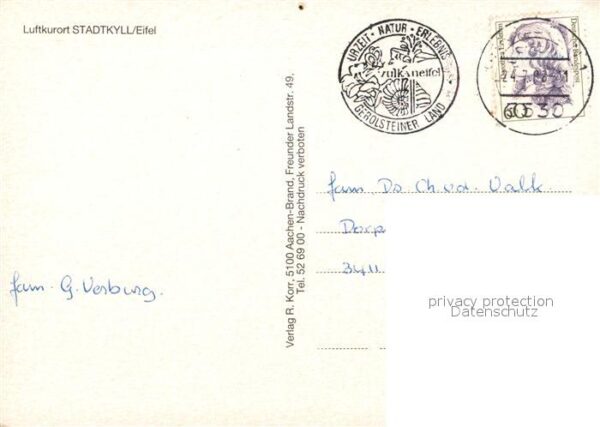 Luftkurort STADTKYLL/Eifel
URZEIT · NATUR · ERLEBNIS
vulkaneifel
GEROLSTEINER LAND
Deutsche Bundespost
60
530
Verlag R. Korr, 5100 Aachen-Brand, Freunder Landstr. 49,
Tel. 52 69 00 - Nachdruck verboten
fam. Ds. Ch. v.d. Valk
Dorp
3411
fam. G. Verburg.
privacy protection
Datenschutz